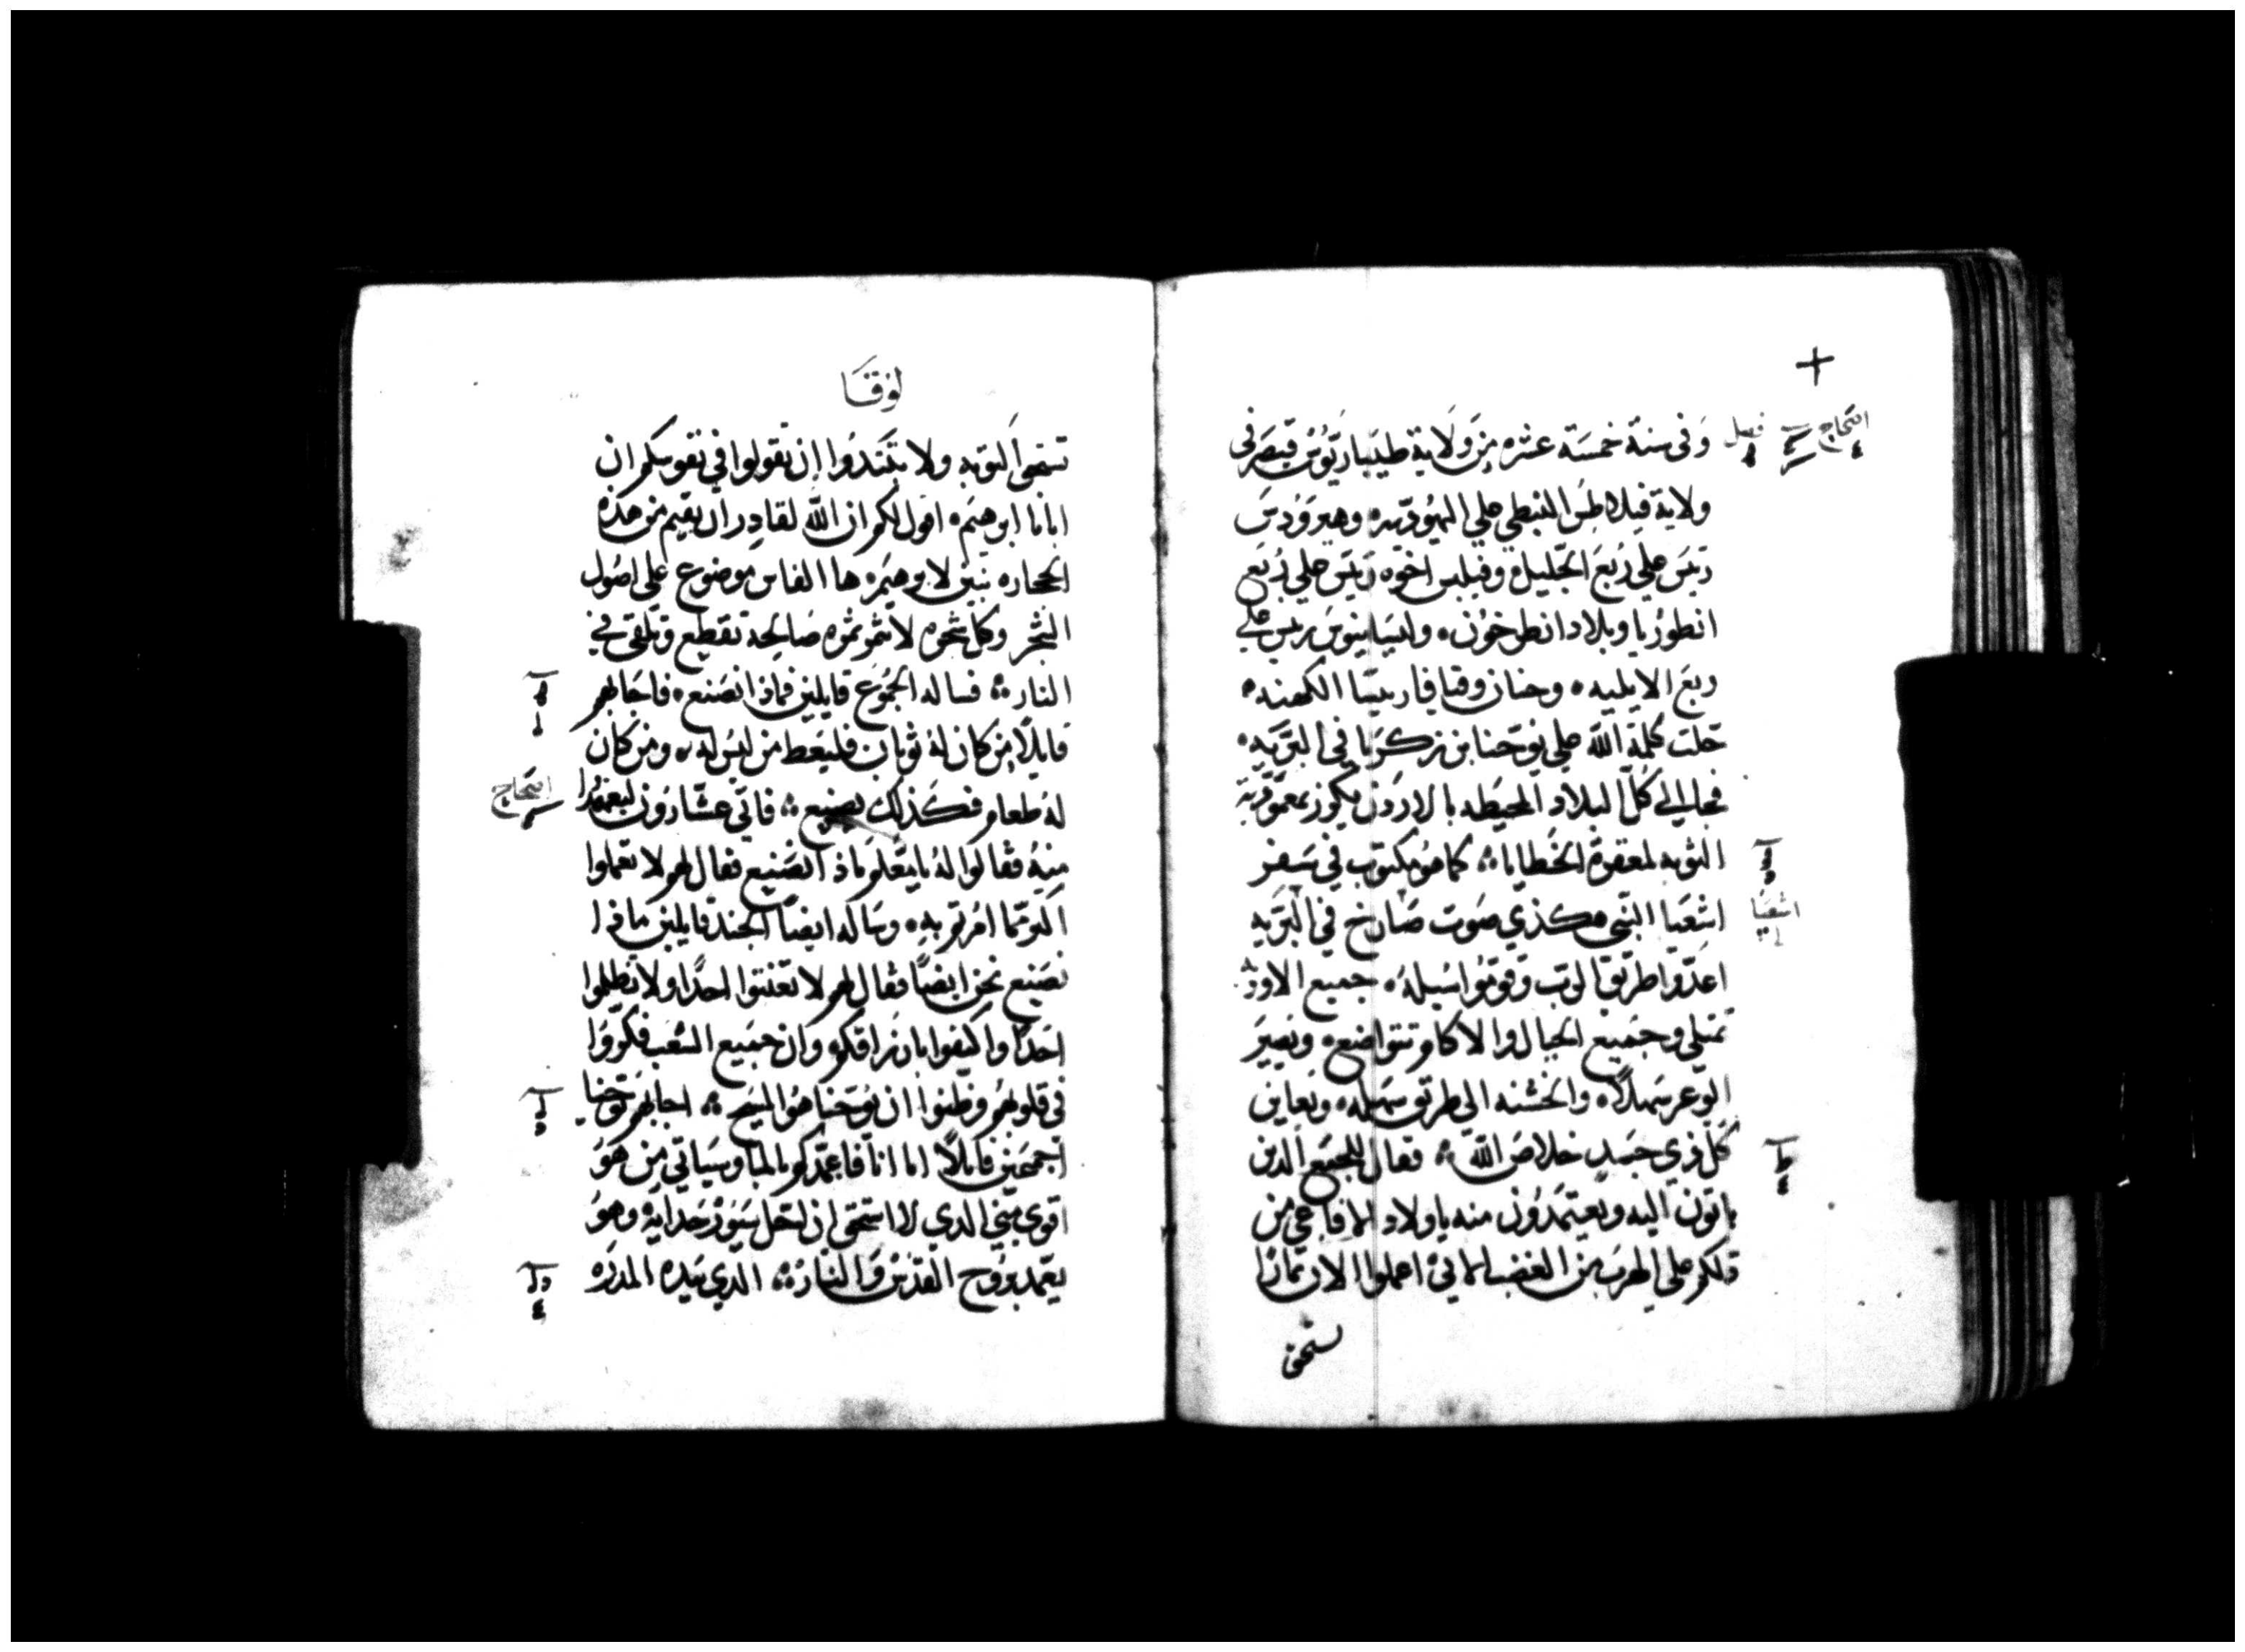 وَفى سنة خمسَة عشره مِن وَلاية طيباريَوُس قيصَر فى
ولاية فيلاطس النبطي علي اليهُوديه وهيروُدس
رئيَس علي رُبَع الجليل وفيلبس اخوَه رَييَس علي رُبَع
انطورُيا وبلاد انطرخوُن وليسَانيوس رييس علي
ربعَ الابليه وحنان وقيافا رييسَا الكهنه
حَلت كلمة اللّه علي يوُحَنا بن زكرَيا في البرَيه
فجا الي كُل البلاد المحيَطه بالاردَن يكرز بمعمَوديَة
التوبه لمغفرة الخَطايا كما هوُ مكتوَب في سَفر
اشعَيا النبَي كذي صَوت صَارخ في البرَيه
اعدّوا طرَيق الرَب وقومَوا سُبله جميع الاوديَه
تمتلي وجمَيع الجبال والاكام تتواضَع ويصيَر
الوَعر سَهلاً والخشنه الي طريَق سَهله ويعَاين
كُل ذي جسَد خلاصَ اللّه فقال للجمَع الذين
ياتون اليه ويعتمدوُن منه ياولاد الافاعي من
دلكم علي الهربَ من الغضب الاتي اعملوا الان ثماراً
تستحق
+
فصل
اشعَيا
لوُقَا
تستحق التوبه ولا تبتَدوُا ان تقولوا في نفوسَكم ان
ابانا ابرهيَم اقول لكم ان اللّه لقادِر ان يقيم من هَذه
الحجاره بنيَن لابرهيَم ها الفاس مَوضوع علي اصُول
الشجر وكل شجره لا تثمر ثمَره صَالحة تقطَع وتلقَى في
النار فساله الجموُع قايلين فماذا نصَنع فاجَابهم
قايلاً مِن كان لهُ ثوَبان فليعَط من ليسَ له ومن كان
لهُ طعام فكذلك يصنَع فاتي عشَاروُن ليعَمدُوا
مِنهُ فقالوا لهُ يا معَلم ماذا نصَنع فقال لهم لا تعملوا
اكثر مما امُرتم بهِ وسَاله ايضاً الجند قايلين ماذا
نصَنع نحن ايضاً فقال لهم لا تعَنتوا احدًا ولا تظلموا
احدًا واكتفوا بارزاقكم وان جميَع الشعَب فكروَا
في قلوبهُم وظنوا ان يوُحَنا هوُ المسَيح اجابهم يوُحَنا
اجمعَين قايلاً اما انا فاعمدَكم بالما وسَياتي مِن هوَ
اقوى مِني الدي لا استحق ان احَل سيوُر حَدايهُ وهوُ
يعَمد برُوح القدُس والنارُ الدي بيَده المدرَه